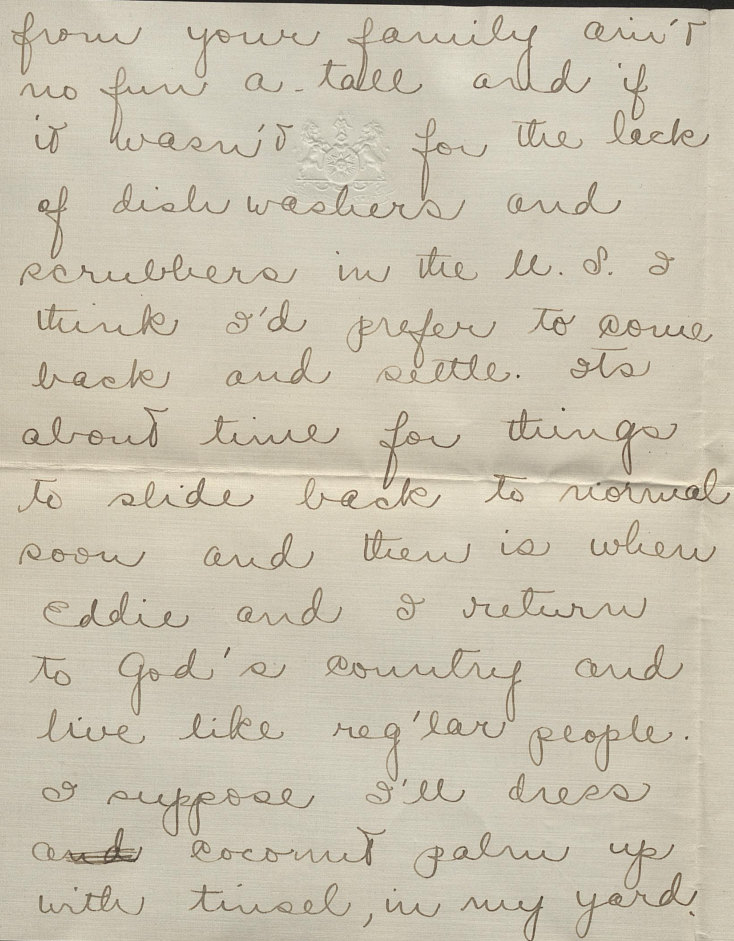 from your family ain't
no fun a-tall and if
it wasn't for the lack
of dish washers and
scrubbers in the U. S. I
think I'd prefer to come
back and settle. Its
about time for things
to slide back to normal
soon and then is when
Eddie and I return
to God's country and
live like reg'lar people.
I suppose I'll dress
a̶n̶d̶ coconut palm up
with tinsel, in my yard.